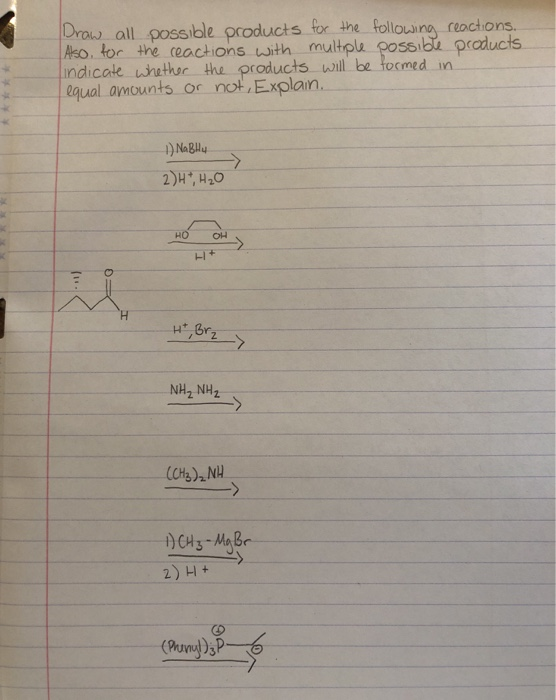 Draw all possible products for the following reactions.
Also, for the reactions with multiple possible products
indicate whether the products will be formed in
equal amounts or not, Explain.
1) NaBH4
2) H+, H2O
HO OH
H+
O
H
H+, Br2
NH2 NH2
(CH3)2 NH
1) CH3-MgBr
2) H+
(Phenyl)3P